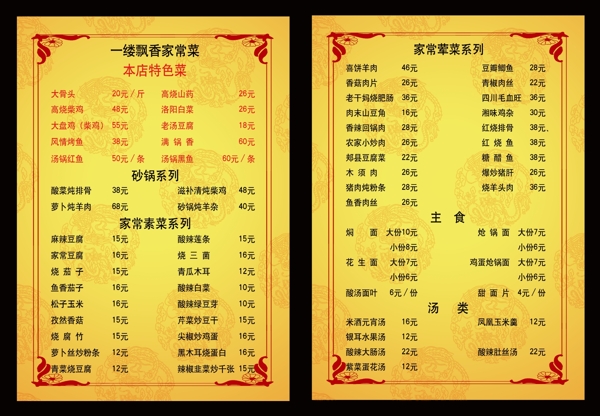 一缕飘香家常菜
本店特色菜
大骨头 20元／斤 高烧山药 26元
高烧柴鸡 48元 洛阳白菜 26元
大盘鸡（柴鸡） 55元 老汤豆腐 18元
风情烤鱼 38元 满锅香 60元
汤锅红鱼 50元／条 汤锅黑鱼 60元／条
砂锅系列
酸菜炖排骨 38元 滋补清炖柴鸡 48元
萝卜炖羊肉 68元 砂锅炖羊杂 40元
家常素菜系列
麻辣豆腐 15元 酸辣莲条 15元
家常豆腐 16元 烧三菌 16元
烧茄子 15元 青瓜木耳 12元
鱼香茄子 16元 酸辣白菜 10元
松子玉米 16元 酸辣绿豆芽 10元
孜然香菇 15元 芹菜炒豆干 15元
烧腐竹 15元 尖椒炒鸡蛋 16元
萝卜丝炒粉条 12元 黑木耳烧蛋白 16元
青菜烧豆腐 12元 辣椒韭菜炒千张 15元
家常荤菜系列
喜饼羊肉 46元 豆瓣鲫鱼 28元
香菇肉片 26元 青椒肉丝 22元
老干妈烧肥肠 36元 四川毛血旺 36元
肉末山豆角 16元 湘味鸡杂 30元
香辣回锅肉 28元 红烧排骨 38元.
农家小炒肉 26元 红烧鱼 38元
郏县豆腐菜 22元 糖醋鱼 38元
木须肉 26元 爆炒猪肝 26元
猪肉炖粉条 28元 烧羊头肉 36元
鱼香肉丝 26元
主食
焖面 大份10元 炝锅面 大份7元
小份8元 小份6元
花生面 大份7元 鸡蛋炝锅面 大份7元
小份6元 小份6元
酸汤面叶 6元／份 甜面片 4元／份
汤类
米酒元宵汤 16元 凤凰玉米羹 12元
银耳水果汤 12元
酸辣大肠汤 22元 酸辣肚丝汤 22元
紫菜蛋花汤 12元